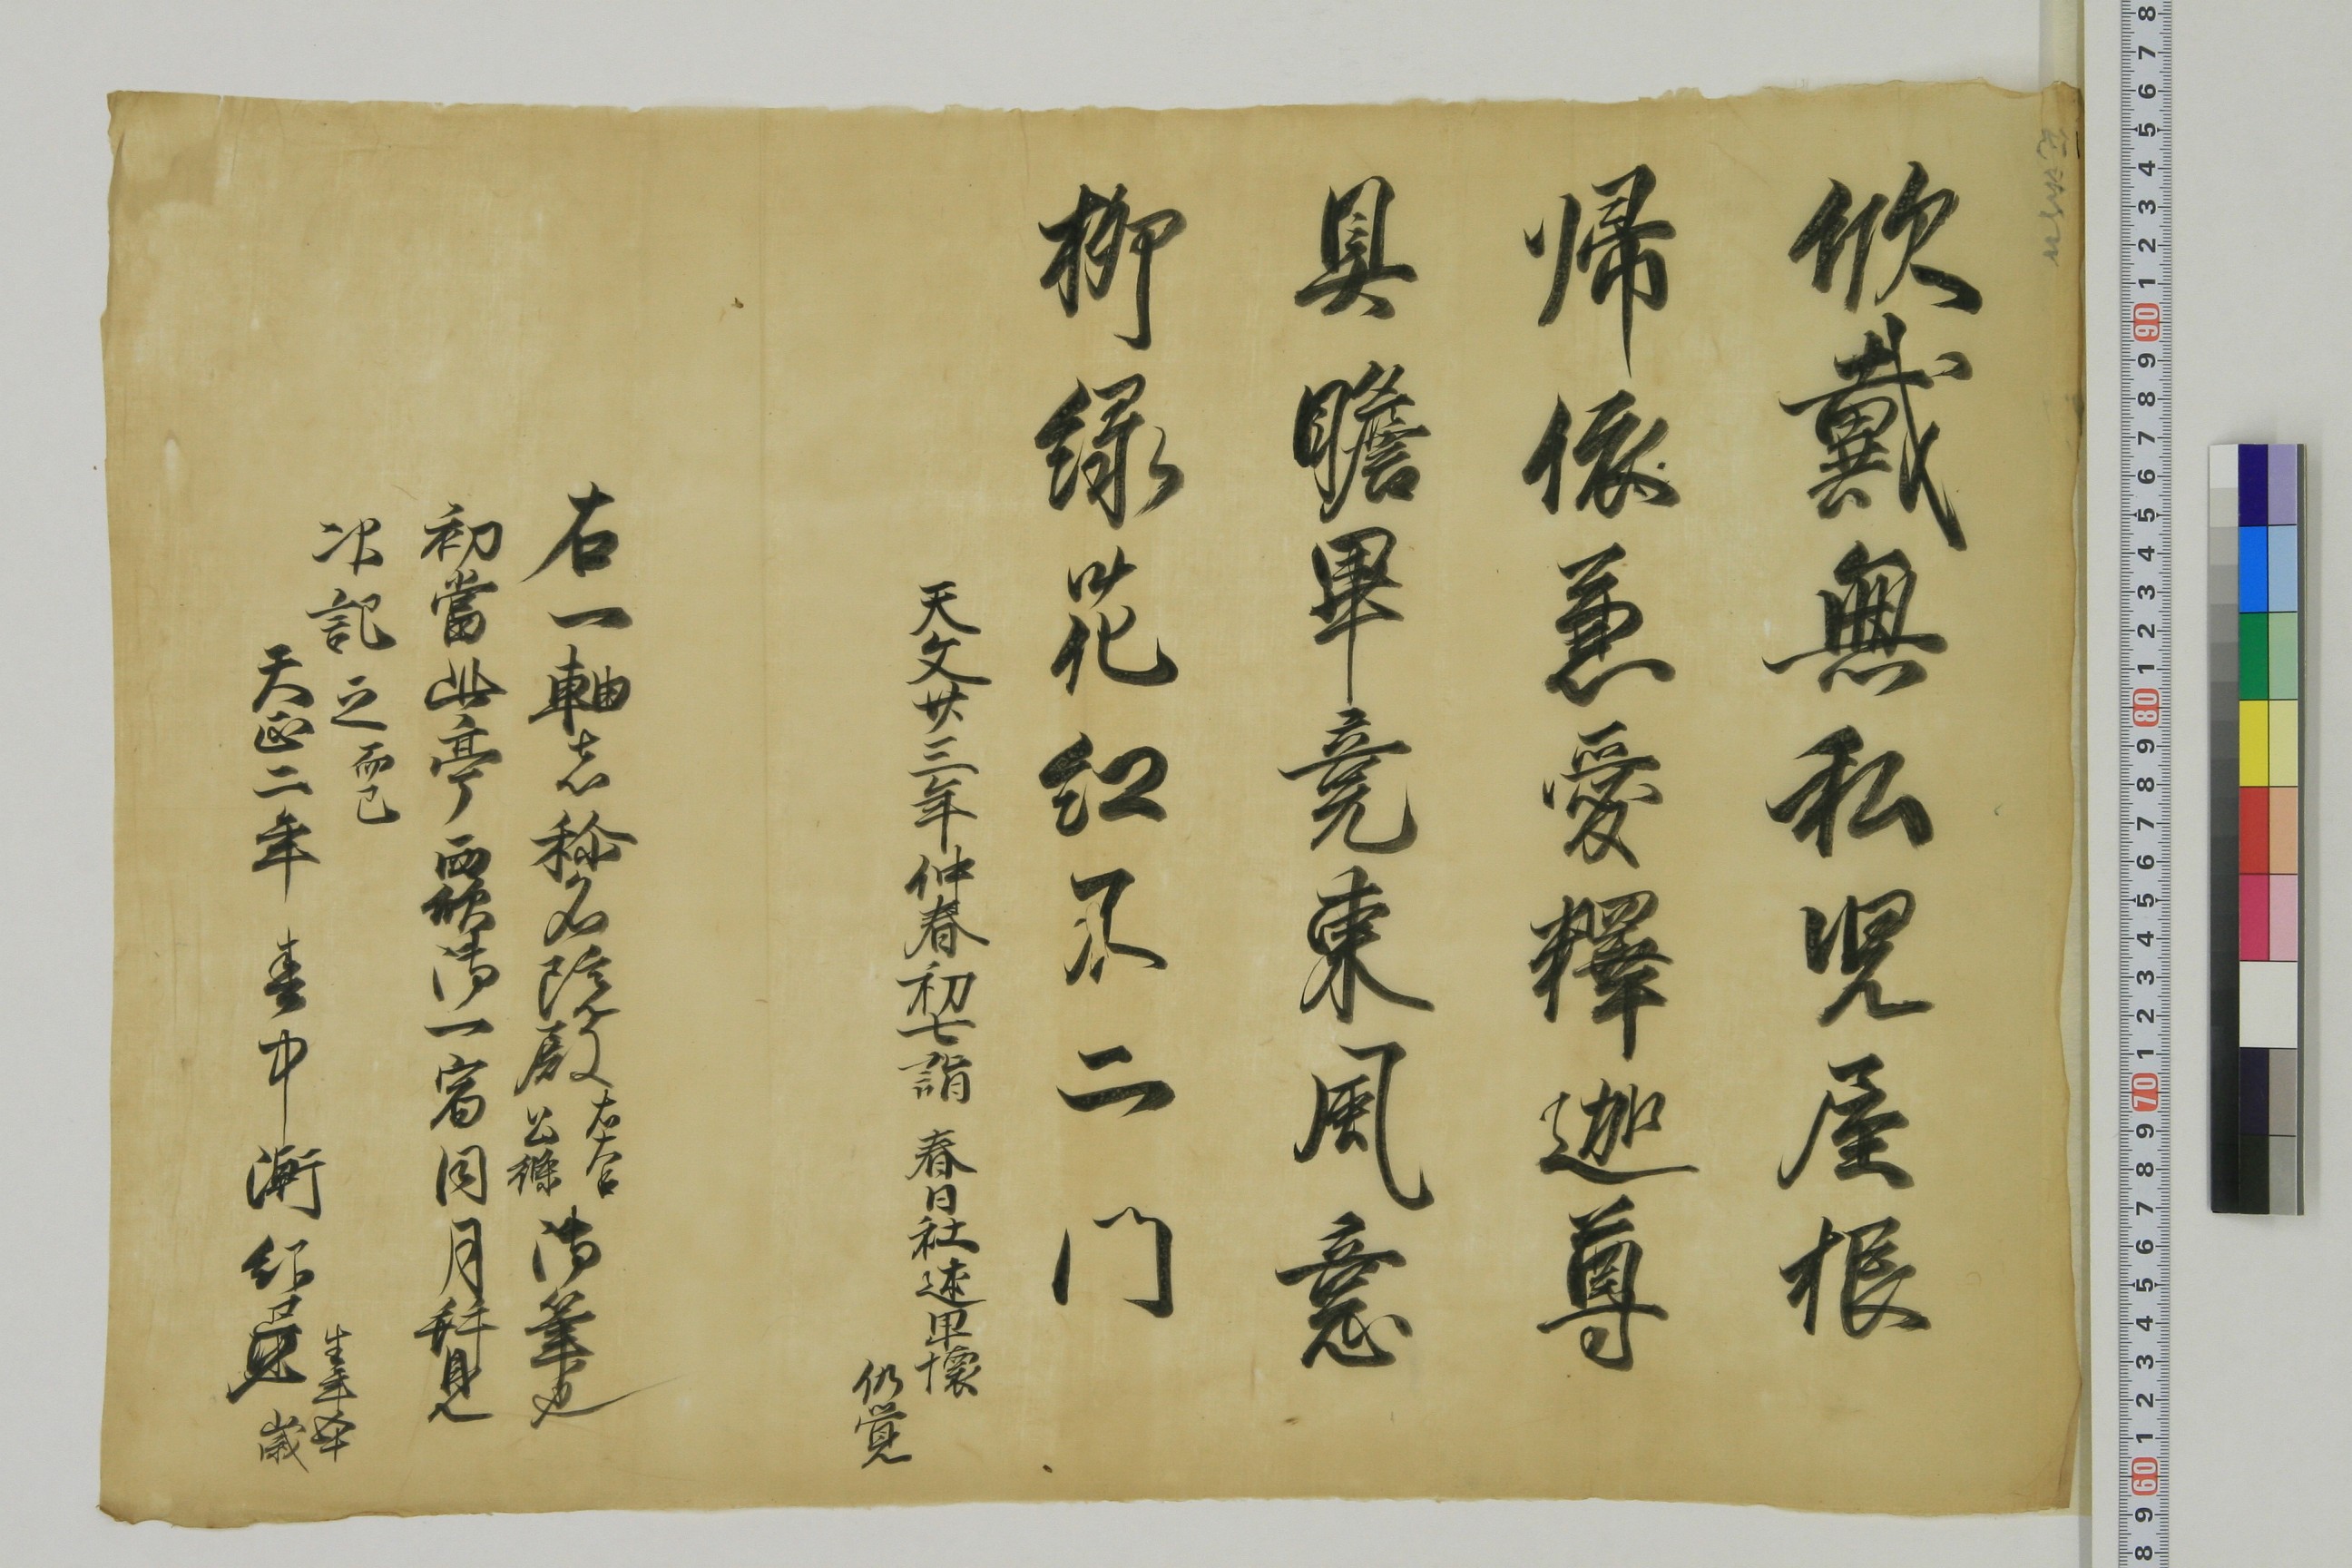 欣戴無私児屋根
帰依兼愛釋迦尊
具瞻畢竟東風意
柳緑花紅不二門
天文廿三年仲春初七詣 春日社述卑懐
仍覚
右一軸者称名院殿右大臣公條御筆也
初當此亭御一宿同月拝見
次記之而已
天正二年春中澣紹
生年 歳